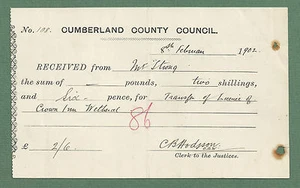 No. 108. CUMBERLAND COUNTY COUNCIL.
8th February 1902.
RECEIVED from Mr Strong
the sum of — pounds, two shillings,
and Six pence, for Transfer of Licence of
Crown Inn Wetheral
86
£ 2/6. C B Hodgson
Clerk to the Justices.